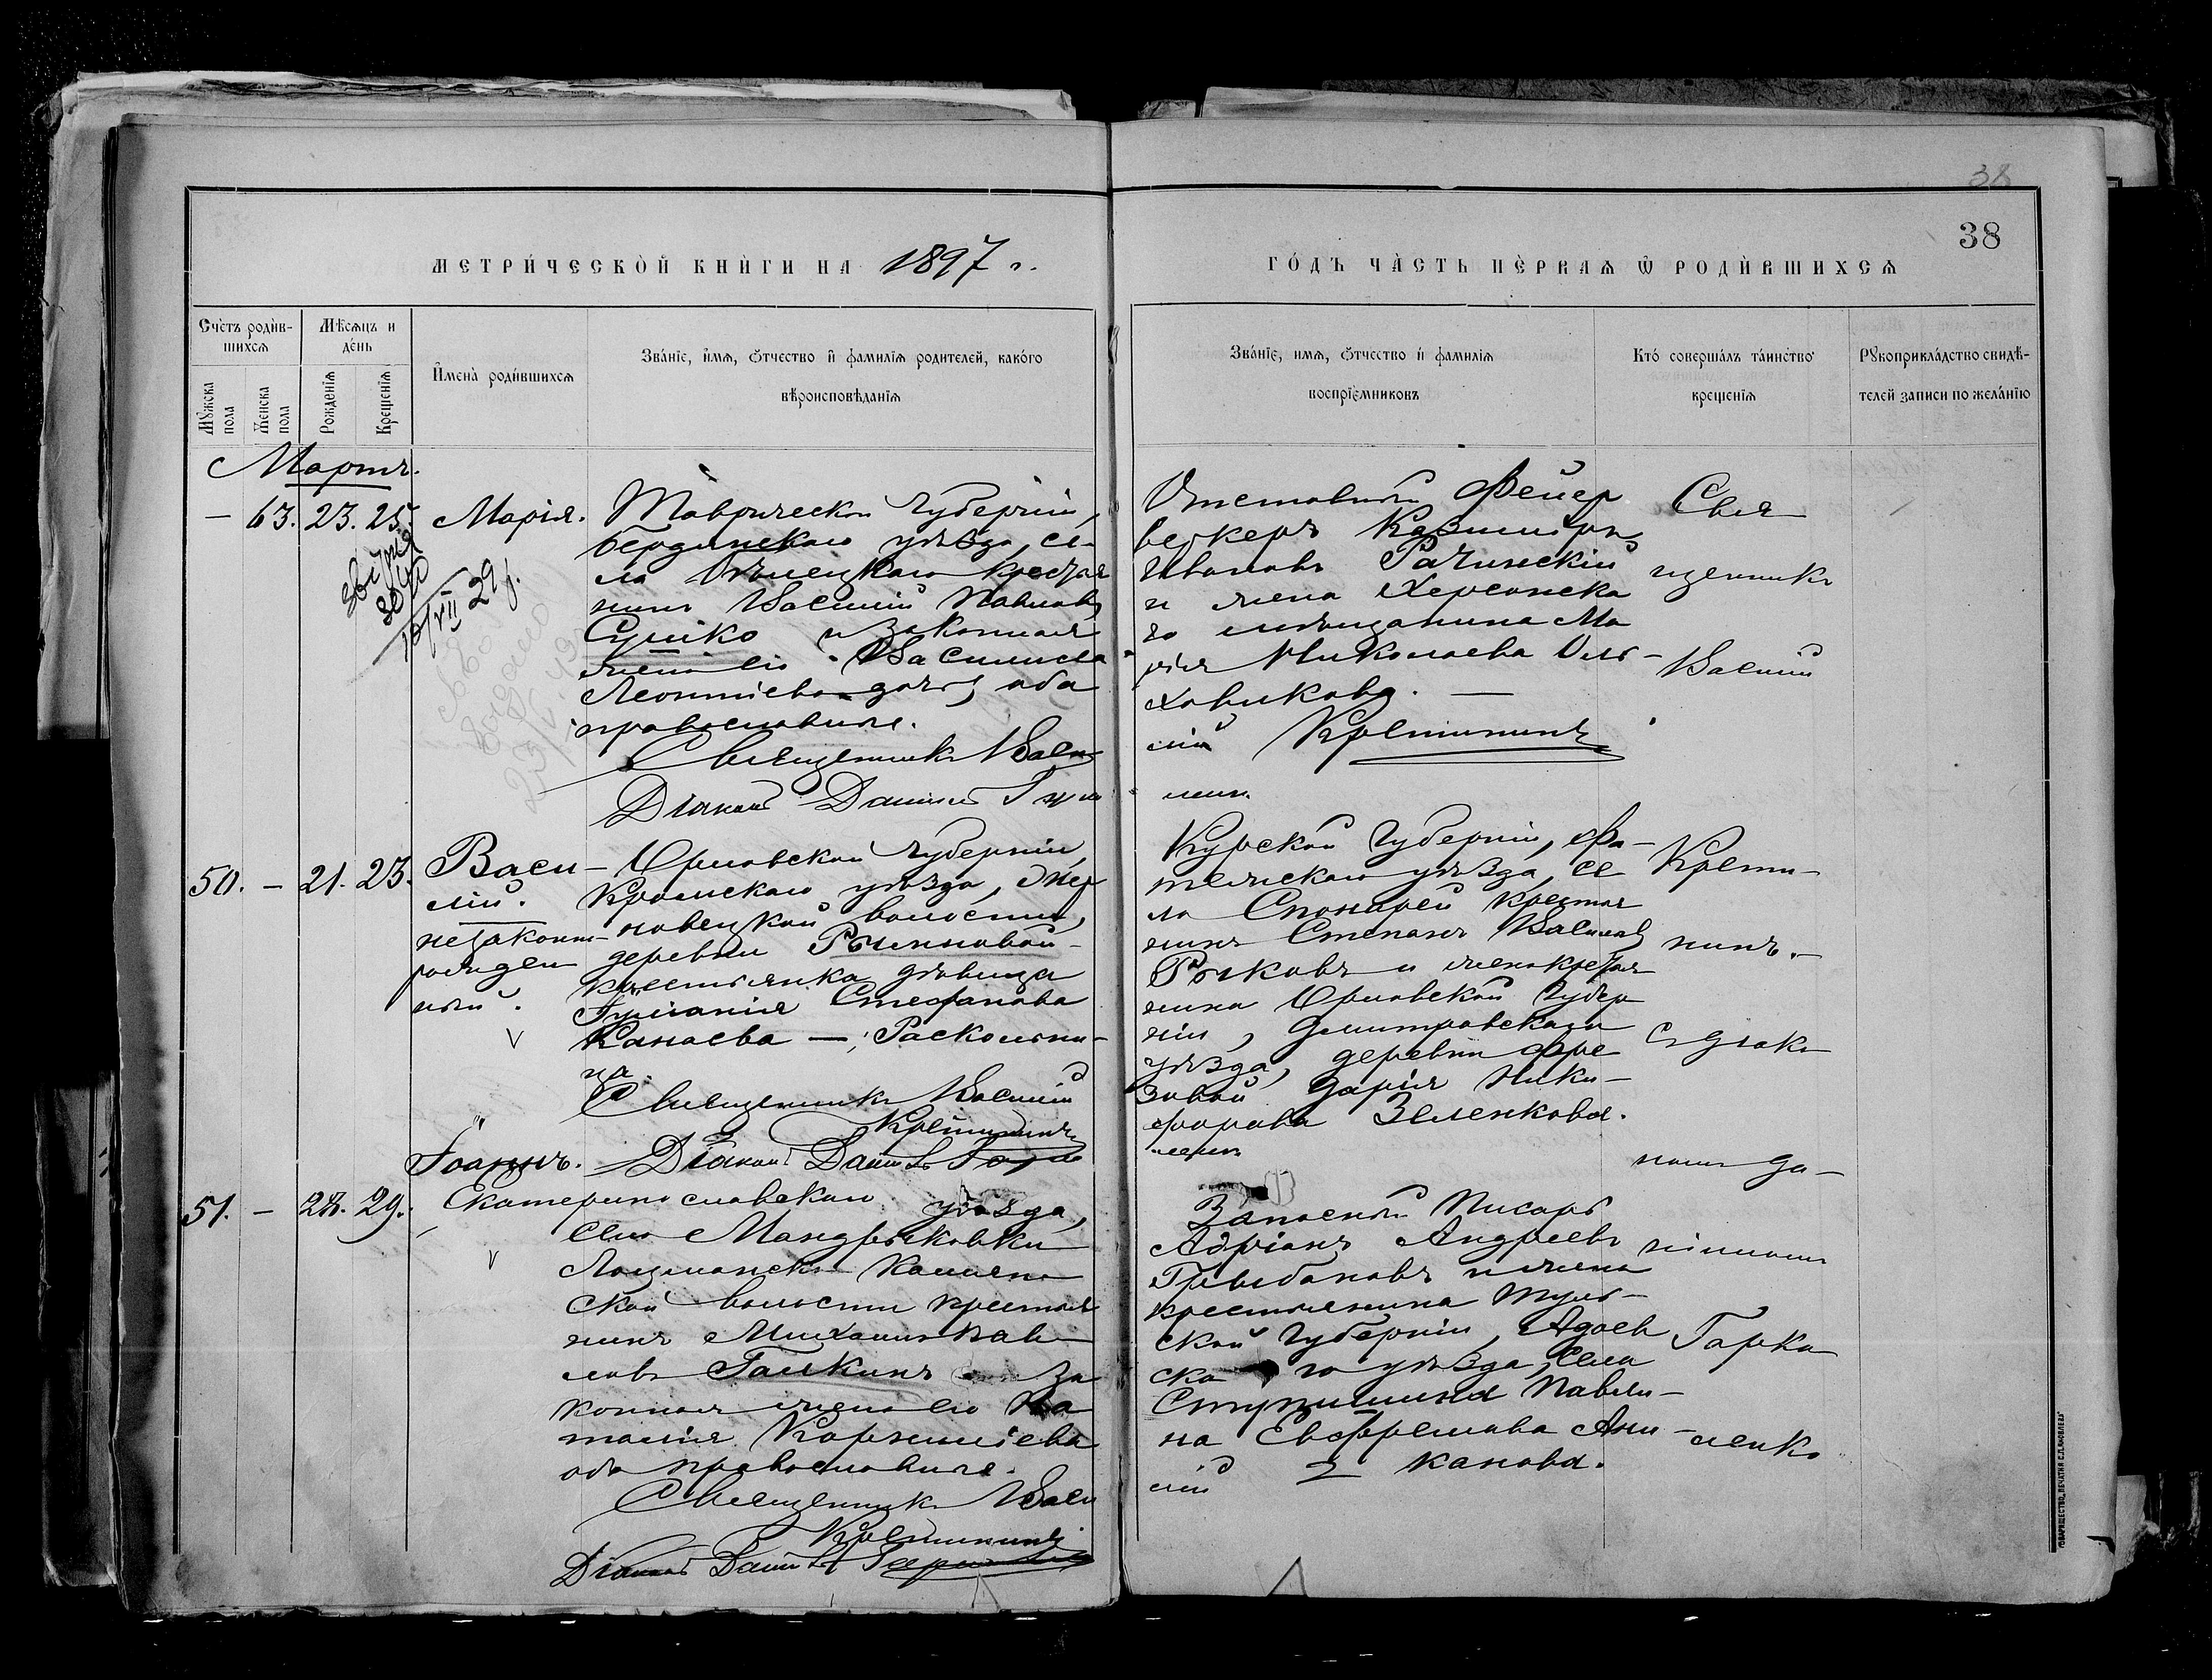 38
38
МЕТРИ́ЧЕСКОЙ КНИ́ГИ НА 1897 г.
ГО́ДЪ ЧА́СТЬ ПЕ́РВАѦ Ѿ РОДИ́ВШИХСѦ
Сче́тъ роди́в-
шихсѧ
Мꙋжска пола
Женска пола
Мѣ́сѧцъ и
де́нь
Рожденїѧ
Крещенїѧ
И҆мена̀ роди́вшихсѧ
Зва́нїе, и҆́мѧ, ѻ҆́тчество и҆ фами́лїѧ родителей, како́го
вѣроисповѣданїѧ
Зва́нїе, имѧ, ѻ҆́тчество и҆ фамилїѧ
воспрїе́мниковъ
Кто̀ соверша́лъ та́инство
крещенїѧ
Рꙋкоприкла́дство свидѣ́-
телей записи по жела́нїю
Мартъ.
— 63. 23. 25. Марія.
10/VII 29 г.
Таврической губерніи,
Бердянскаго уѣзда, се-
ла крестья
нинъ Василій Павловъ
и законная
жена его Василиса
Леонтіева дочь, оба
православные.
Священникъ Васи
Діаконъ Даніилъ
Отставной Фейер
веркеръ Казимиръ
Ивановъ Рачинскій
и жена Херсонска
го мѣщанина Ма
рія Николаева Оль-
ховикова. —
лій Кретининъ
Свя
щенникъ
Василій
50. — 21. 23. Васи-
лій.
незакон-
рожден
ный.
Орловской губерніи,
Кромскаго уѣзда,
новецкой волости,
деревни
крестьянка дѣвица
Іуліанія Стефанова
Канаева —, Расколь ни-
ца.
Священникъ Василій
Кретининъ
Діаконъ Даніилъ
Курской губерніи, Фа-
тежскаго уѣзда, се
ла крестья
нинъ Степанъ Васильевъ
Рыковъ и жена крестья
нина Орловской губер
ніи, Дмитровскаго
уѣзда, деревни
зовой Дарія Ники-
форова Зеленкова.
Крети-
нинъ. —
съ діако
номъ Да-
51. — 28. 29. Іоаннъ.
Екатеринославскаго уѣзда,
села Мандрыковки
Лоцманско Камен
ской волости крестья
нинъ Михаилъ Пав
ловъ Галкинъ за
конная жена его На
талія Корниліева
оба православные.
Священникъ Васи
Кретининъ
Діаконъ Даніилъ
Запасный Писарь
Адріанъ Андреевъ
Грыбановъ и жена
крестьянина Туль-
ской губерніи, Одоев
ска го уѣзда, села
Ступишина Павли-
на Евфремова Ани-
канова.
лій
ніиломъ
Гарка
ленко